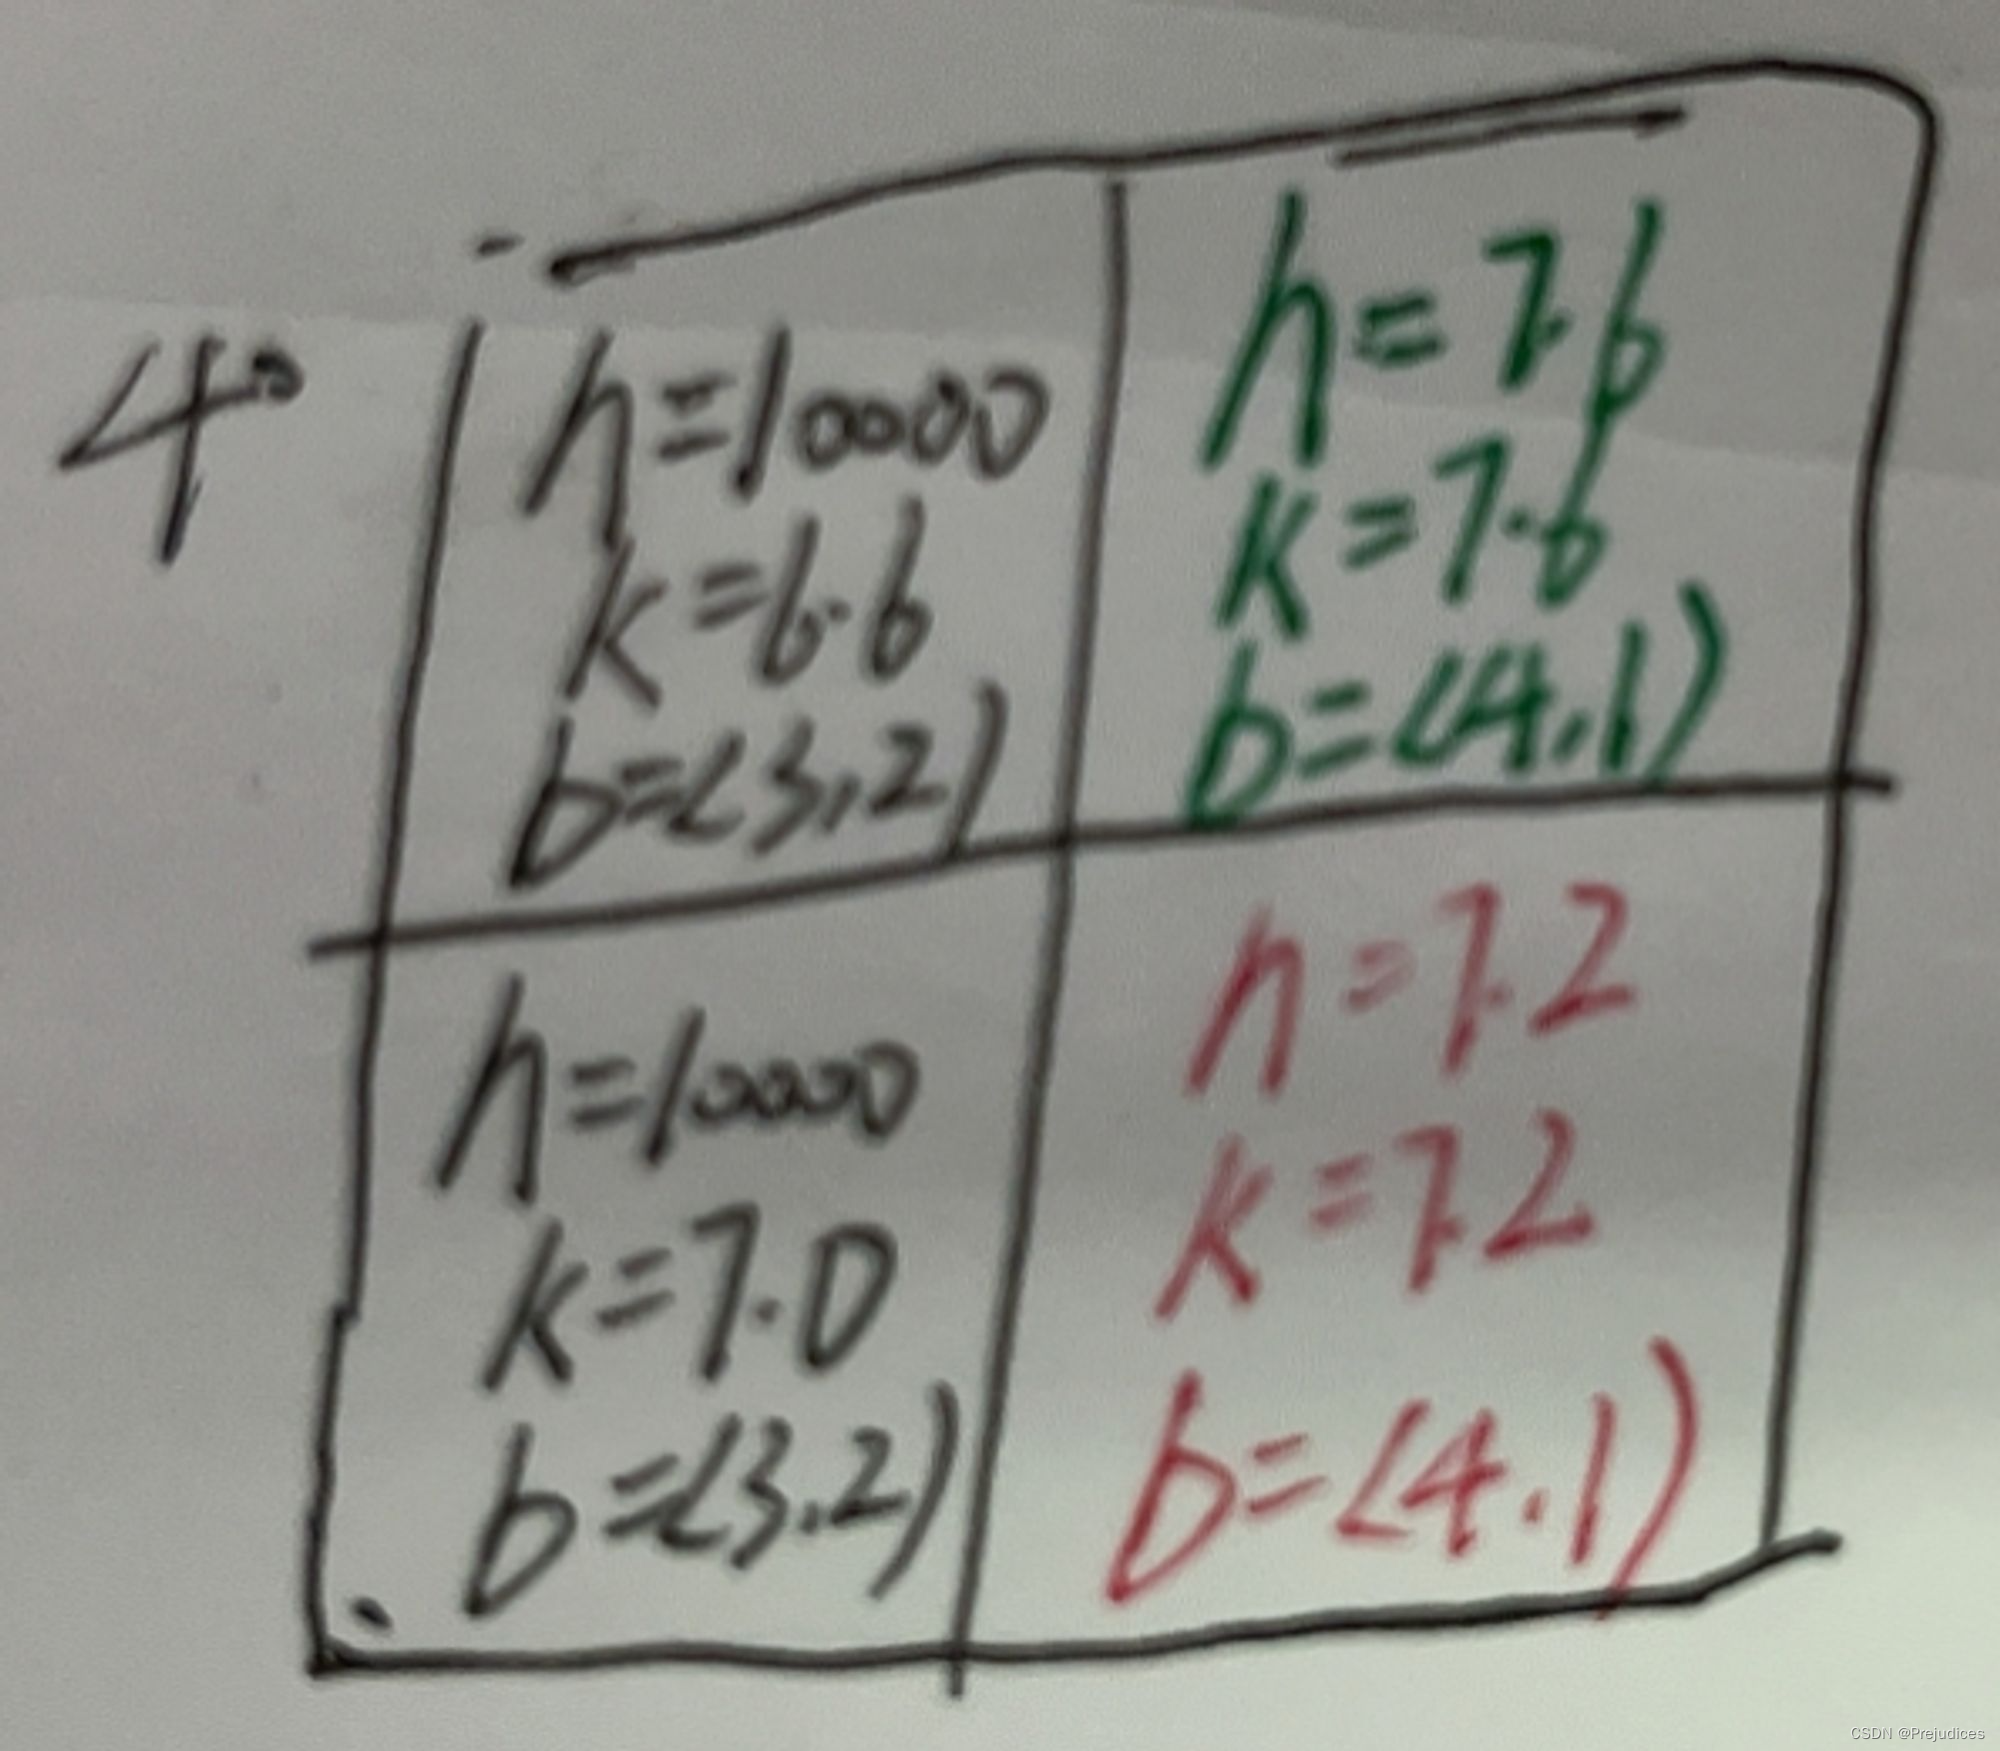 4°
h=10000
k=6.6
b=(3,2)
h=7.6
k=7.6
b=(4,1)
h=10000
k=7.0
b=(3,2)
h=7.2
k=7.2
b=(4,1)
CSDN @Prejudices